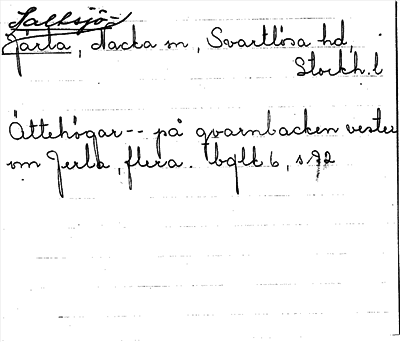 Saltsjö-
Järla, Nacka sn, Svartlösa hd,
Stockh. l
Ättehögar-- på qvarnbacken vester
om Jerla, flera. Ubqlt 6, s 92